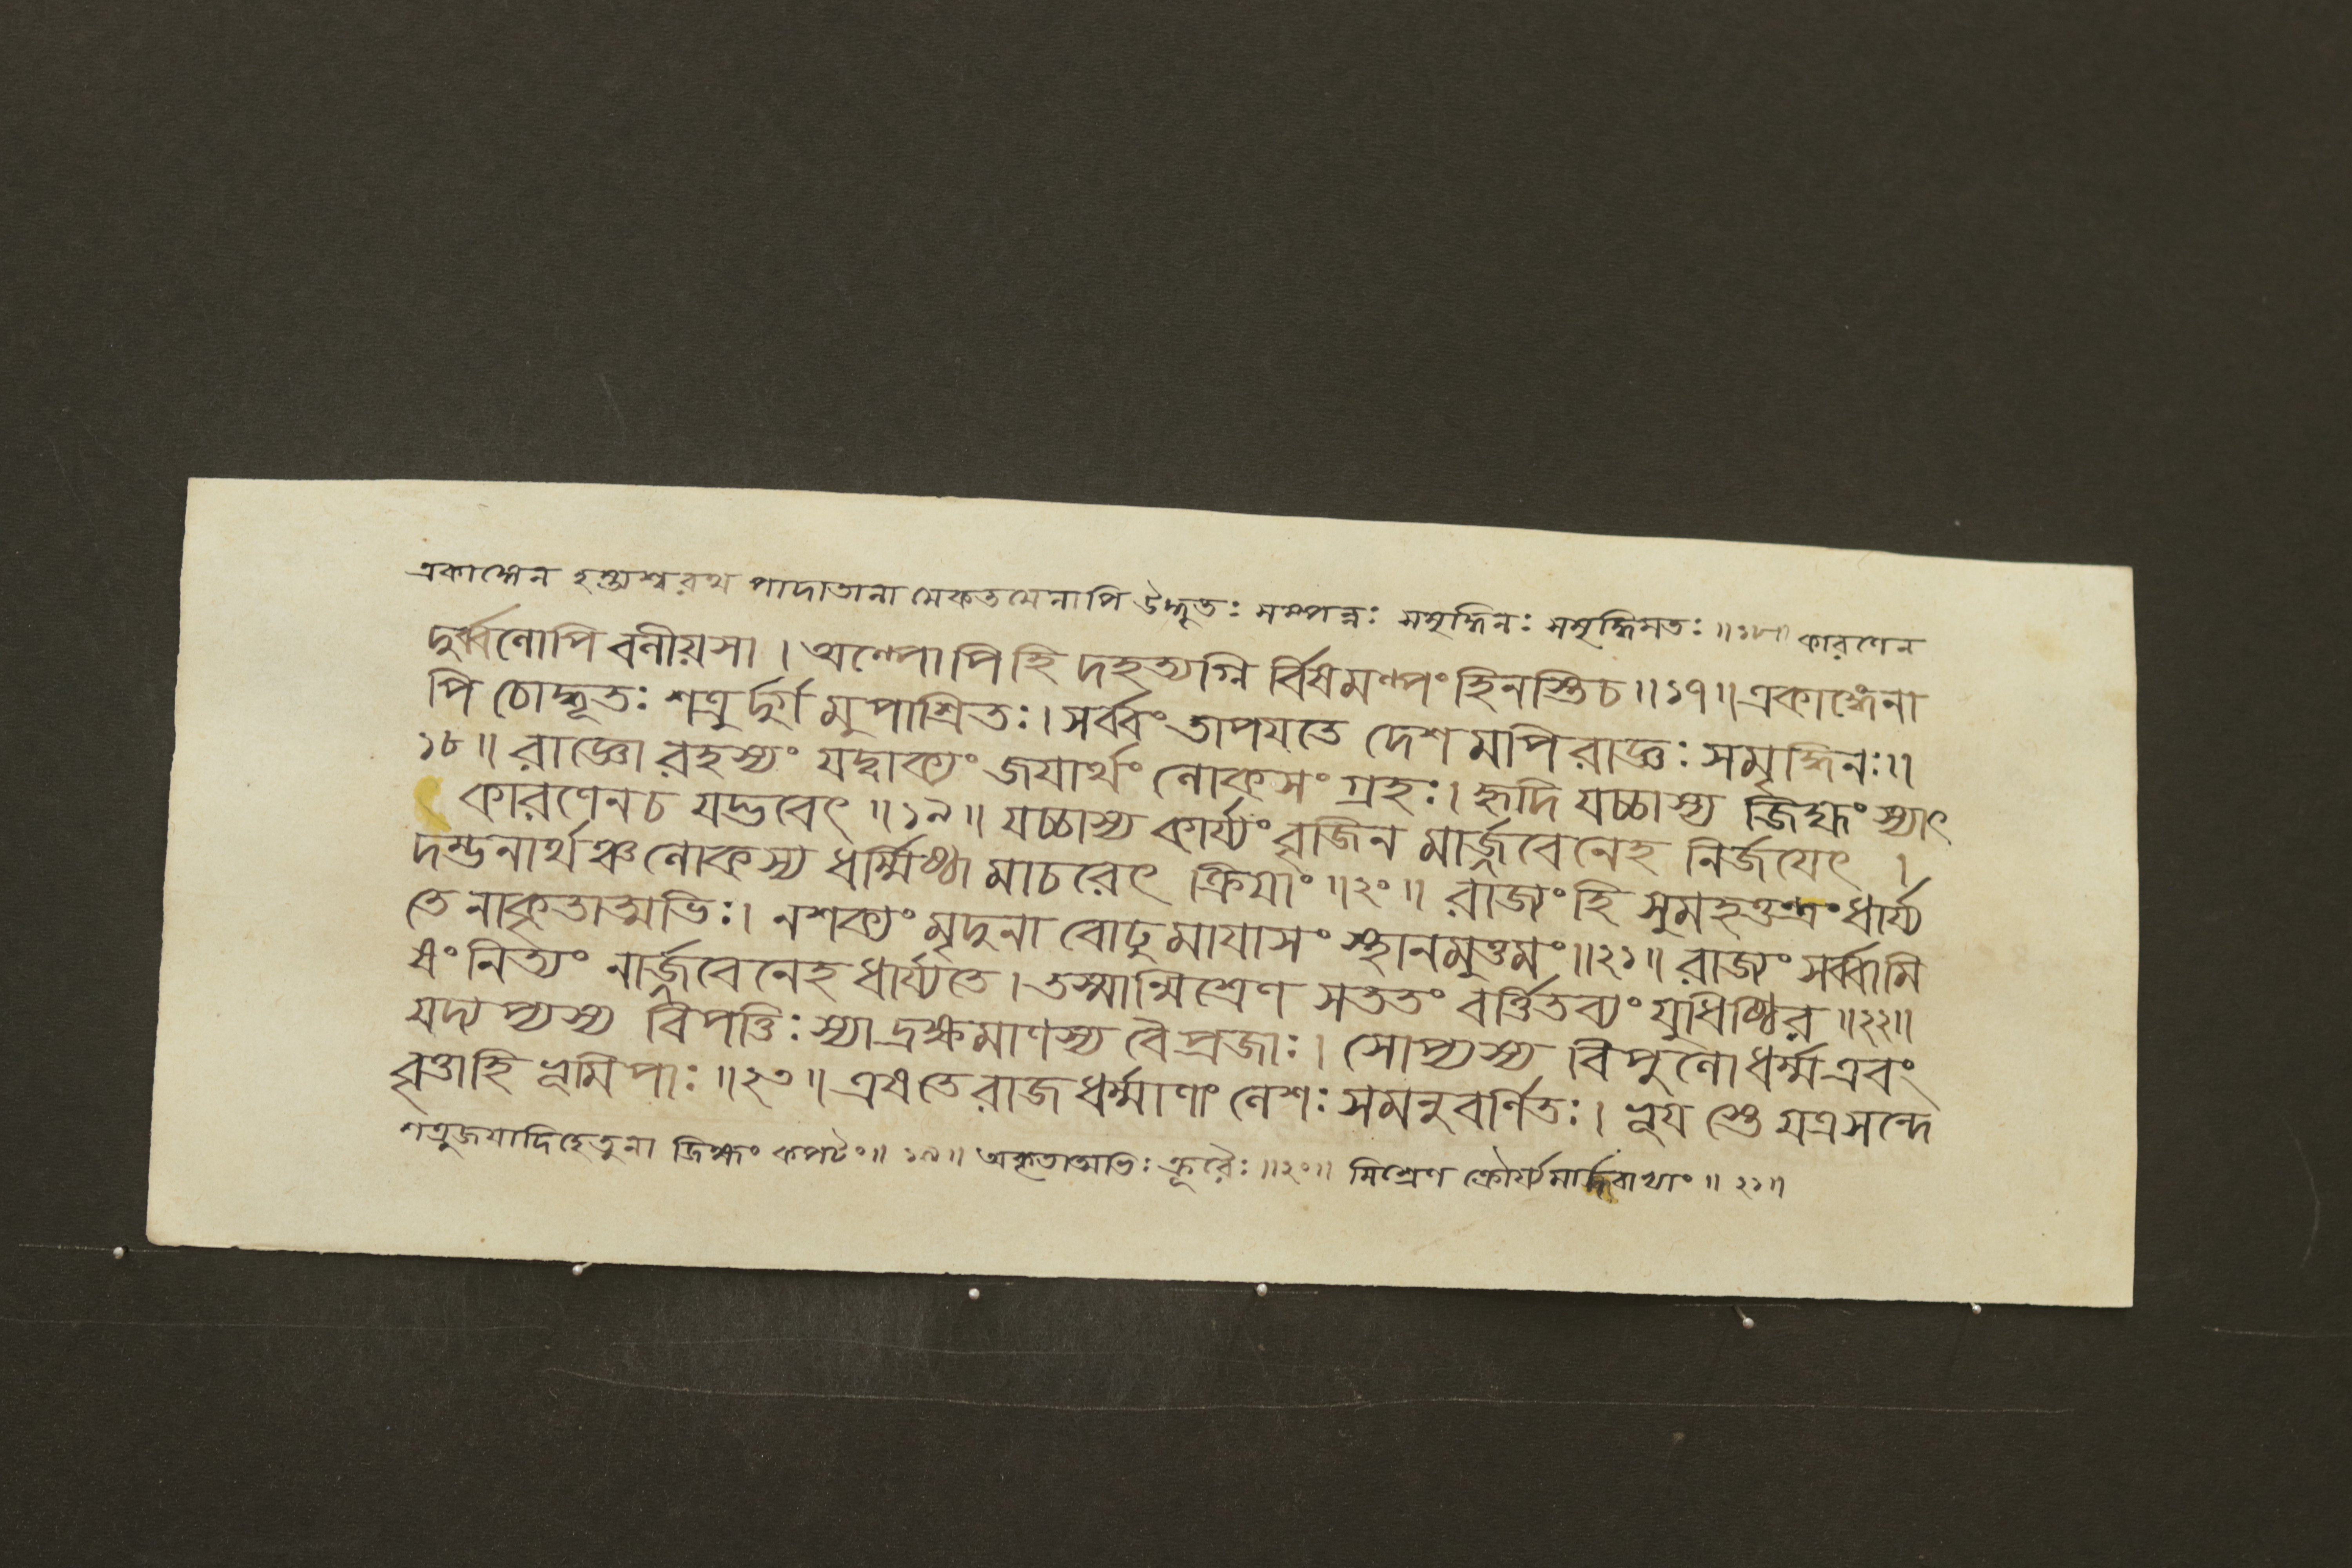 একাঙ্গেন হস্ত্যশ্বরথ পাদাতানা মেকতমেনাপি উদ্ভূতঃ সম্পন্নঃ সমৃদ্ধিনঃ সমৃদ্ধিমতঃ ॥১৮॥ কারণেন
দুর্ব্বলোপি বলীয়সা । অল্পোপি হি দহত্যগ্নি র্ব্বিষমল্পং হিনস্তি চ ॥১৭॥ একাঙ্গেনা
পি চোদ্ভূতঃ শত্রু র্দুর্গ মুপাশ্রিতঃ । সর্ব্বং তাপযতে দেশ মপি রাজ্ঞঃ সমৃদ্ধিনঃ ॥
১৮ ॥ রাজ্ঞো রহস্যং যদ্বাক্যং জযার্থং লোকসং গ্রহঃ । হৃদি যচ্চাস্য জিহ্মং স্যাৎ
কারণেন চ যদ্ভবেৎ ॥ ১৯ ॥ যচ্চাস্য কার্য্যং বৃজিন মার্জ্জবেনেহ নির্জযেৎ ।
দম্ভনার্থঞ্চ লোকস্য ধর্ম্মিষ্ঠা মাচরেৎ ক্রিযাং ॥২০॥ রাজ্যং হি সুমহত্তন্ত্রং ধার্য্য
তে নাকৃতাত্মভিঃ । ন শক্যং মৃদুনা বোঢু মাযাসং স্থানমুত্তমং ॥২১॥ রাজ্যং সর্ব্বামি
ষং নিত্যং নার্জ্জবেনেহ ধার্য্যতে । তস্মান্মিশ্রেণ সততং বর্ত্তিতব্যং যুধিষ্ঠির ॥২২॥
যদ্যপ্যস্য বিপত্তিঃ স্যাদ্রক্ষমাণস্য বৈ প্রজাঃ । সোপ্যস্য বিপুলো ধর্ম্ম এবং
বৃত্তা হি ভূমিপাঃ ॥২৩॥ এষ তে রাজধর্ম্মাণাং লেশঃ সমনুবর্ণিতঃ । ভূয স্তে যত্র সন্দে
শত্রুজযাদি হেতুনা জিহ্মং কপটং ॥ ১৯ ॥ অকৃতাত্মভিঃ ক্রূরৈঃ ॥২০॥ মিশ্রেণ ক্রৌর্য্যমার্দ্দবাভ্যাং ॥ ২১॥